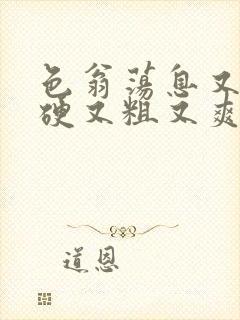 色翁荡息又
硬又粗又爽
道恩